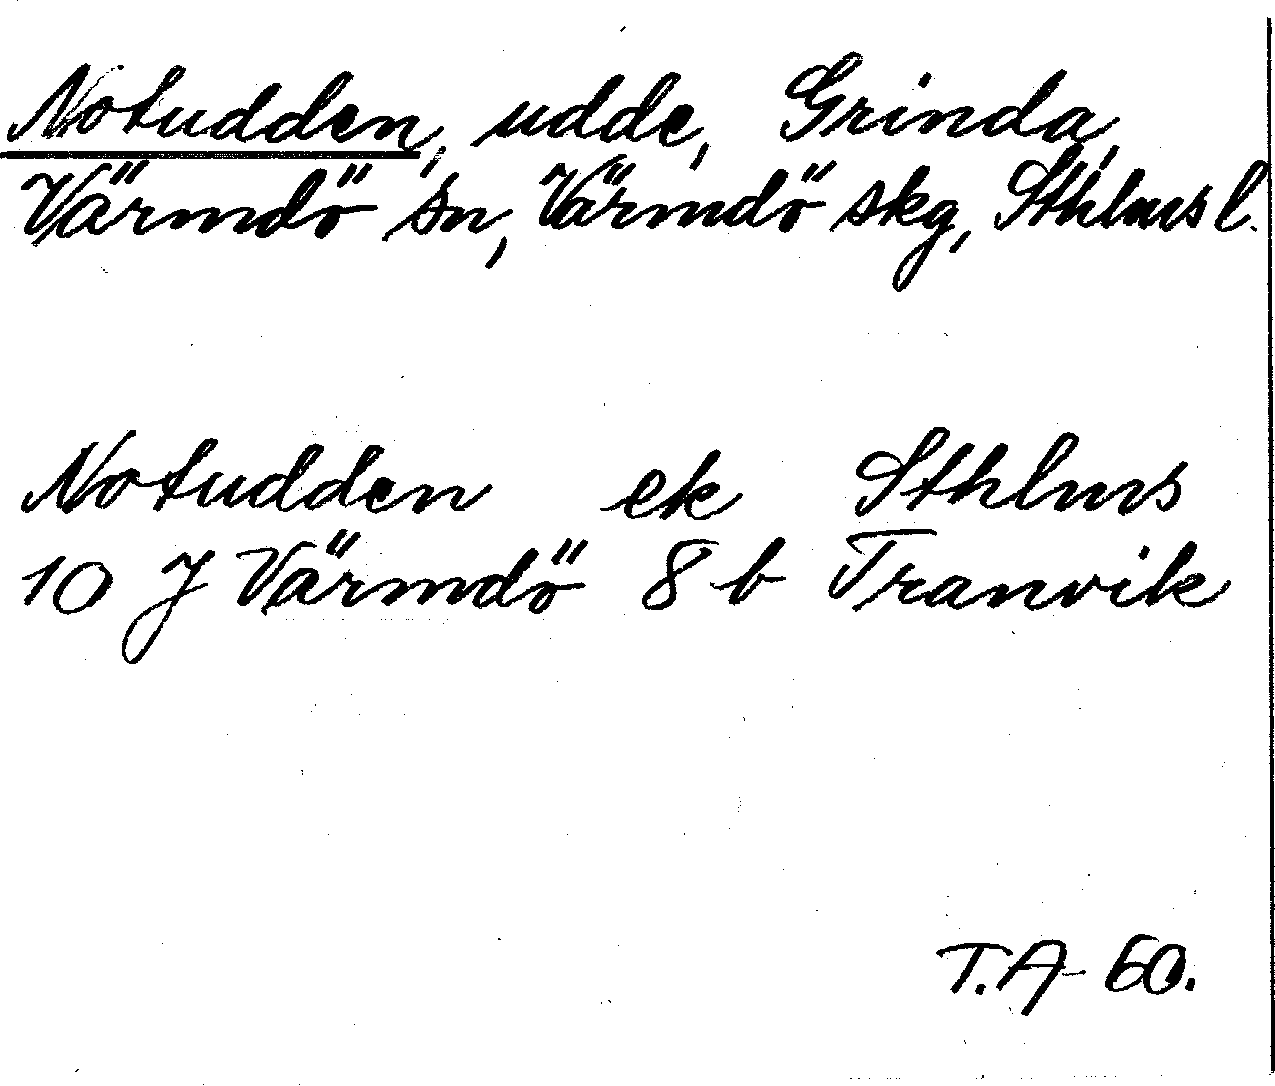 Notudden, udde, Grinda,
Värmdö sn, Värmdö skg, Sthlms l.
Notudden ek Sthlms
10 J Värmdö 8 b Tranvik
T.A 60.